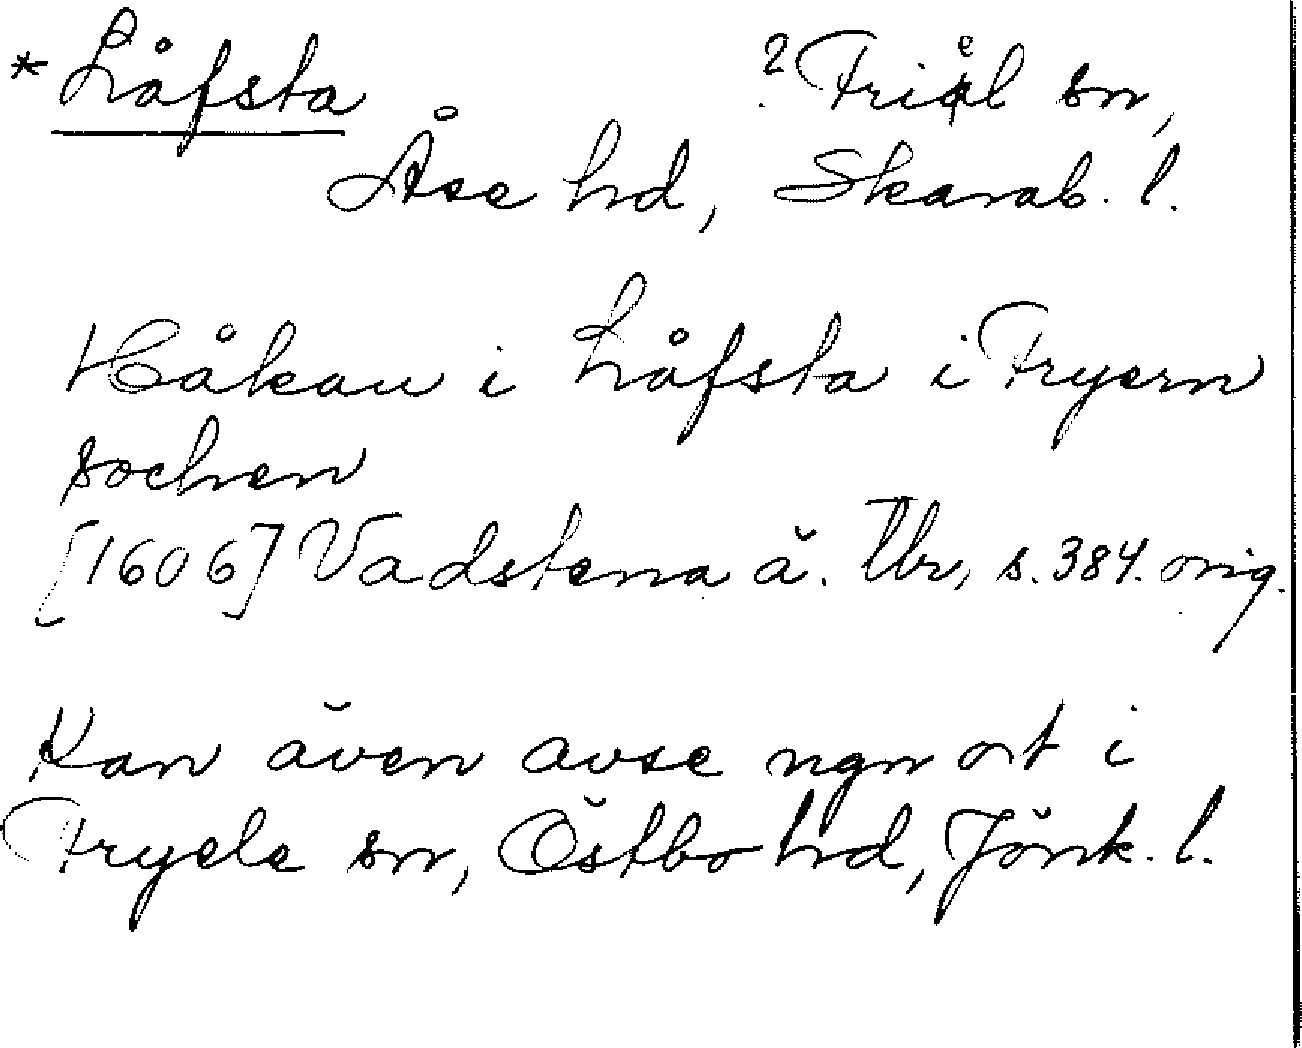 *Låfsta ? Friel sn,
Åse hd, Skarab. l.
Håkan i Låfsta i Fryern
sochen
[1606] Vadstena ä. Tbr, s. 384. orig.
Kan även avse ngn ort i
Fryele sn, Östbo hd, Jönk. l.